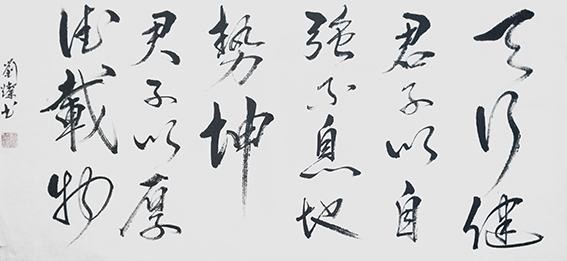 天行健
君子以自
強不息地
勢坤
君子以厚
德載物
劉燦書